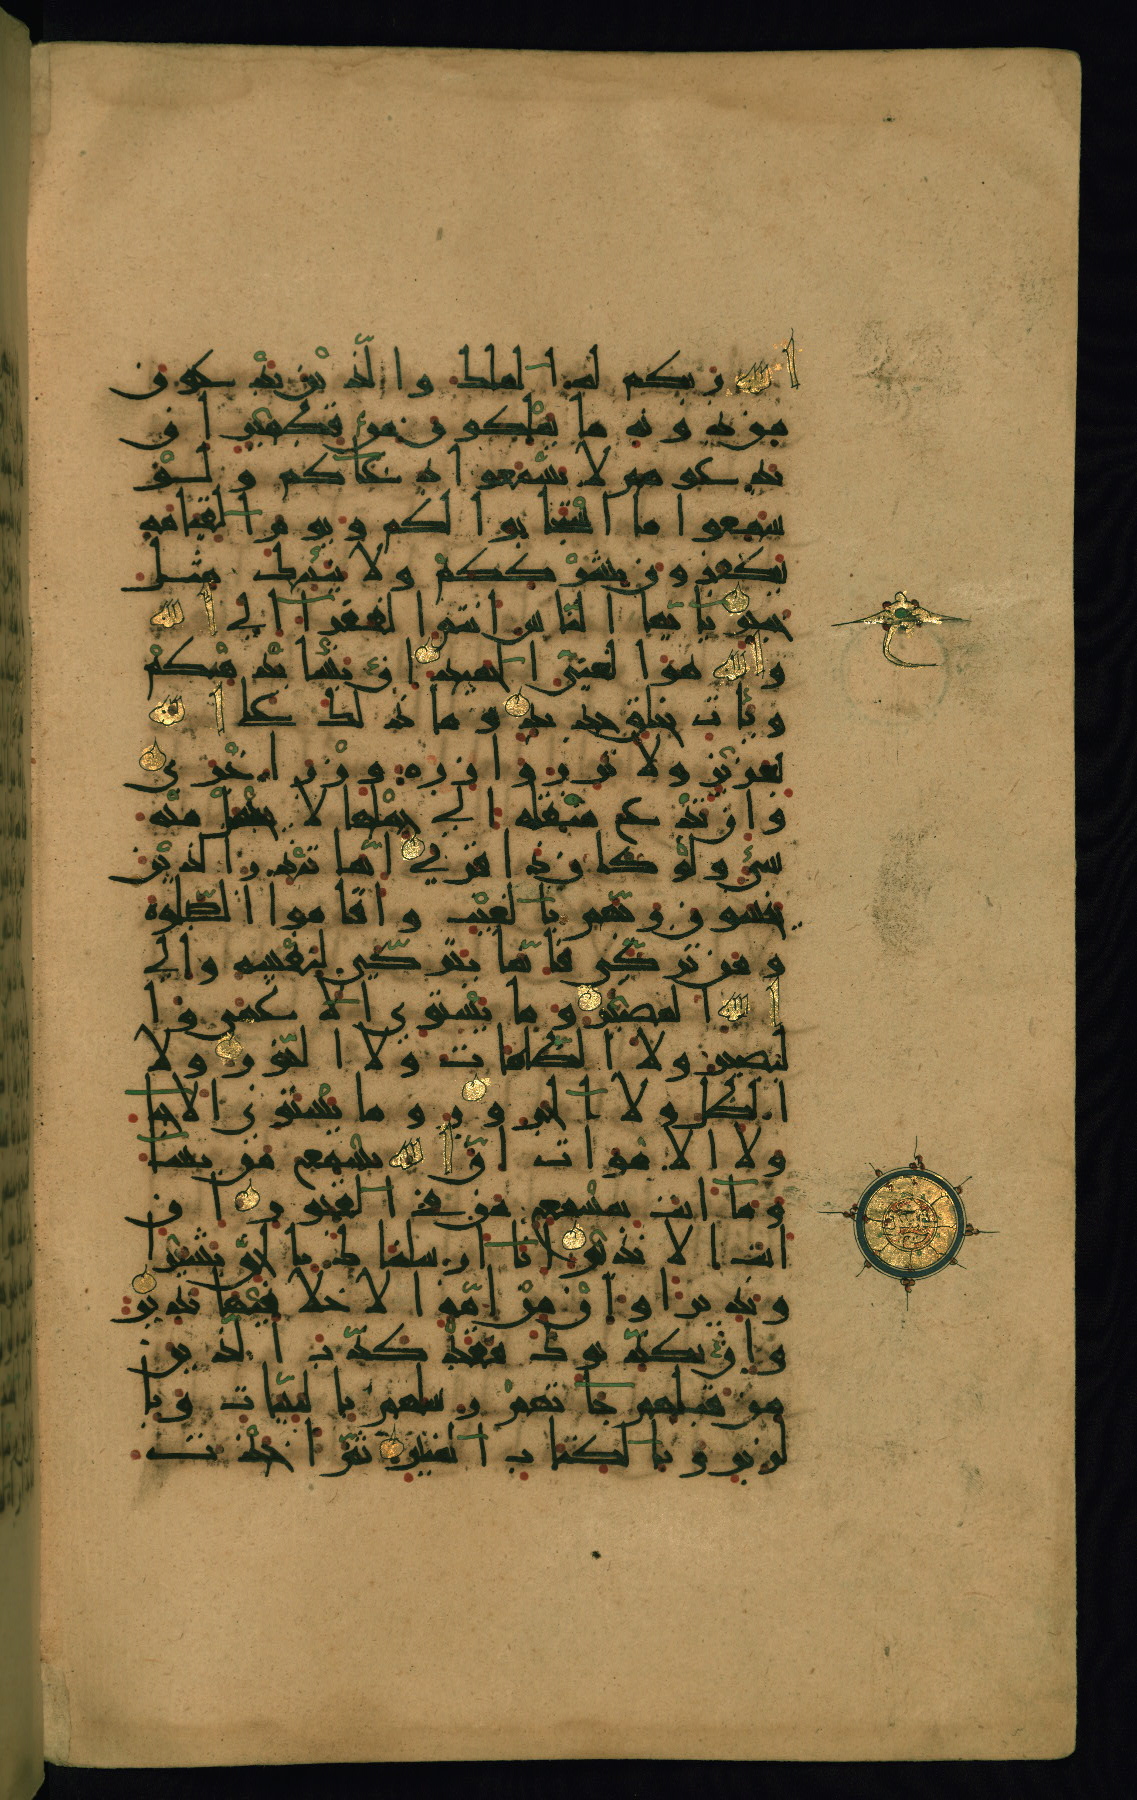 الله ربكم له الملك والذين تدعون
من دونه ما يملكون من قطمير ان
تدعوهم لا يسمعوا دعاكم ولو
سمعوا ما استجابوا لكم ويوم القيامة
يكفرون بشرككم ولا ينبئك مثل
خبير يا ايها الناس انتم الفقرا الى الله
والله هو الغني الحميد ان يشا يذهبكم
ويات بخلق جديد وما ذلك على الله
بعزيز ولا تزر وازرة وزر اخرى
وان تدع مثقلة الى حملها لا يحمل منه
شئ ولو كان ذا قربى انما تنذر الذين
يخشون ربهم بالغيب واقاموا الصلوة
ومن تزكى فانما يتزكى لنفسه والى
الله المصير وما يستوي الاعمى وا
لبصير ولا الظلمات ولا النور ولا
الظل ولا الحرور وما يستوي الاحيا
ولا الاموات ان الله يسمع من يشا
وما انت بمسمع من في القبور ان
انت الا نذير انا ارسلناك بالحق بشيرا
ونذيرا وان من امة الا خلا فيها نذير
وان يكذبوك فقد كذب الذين
من قبلهم جاتهم رسلهم بالبينات وبا
لزبر وبالكتاب المنير ثم اخذت